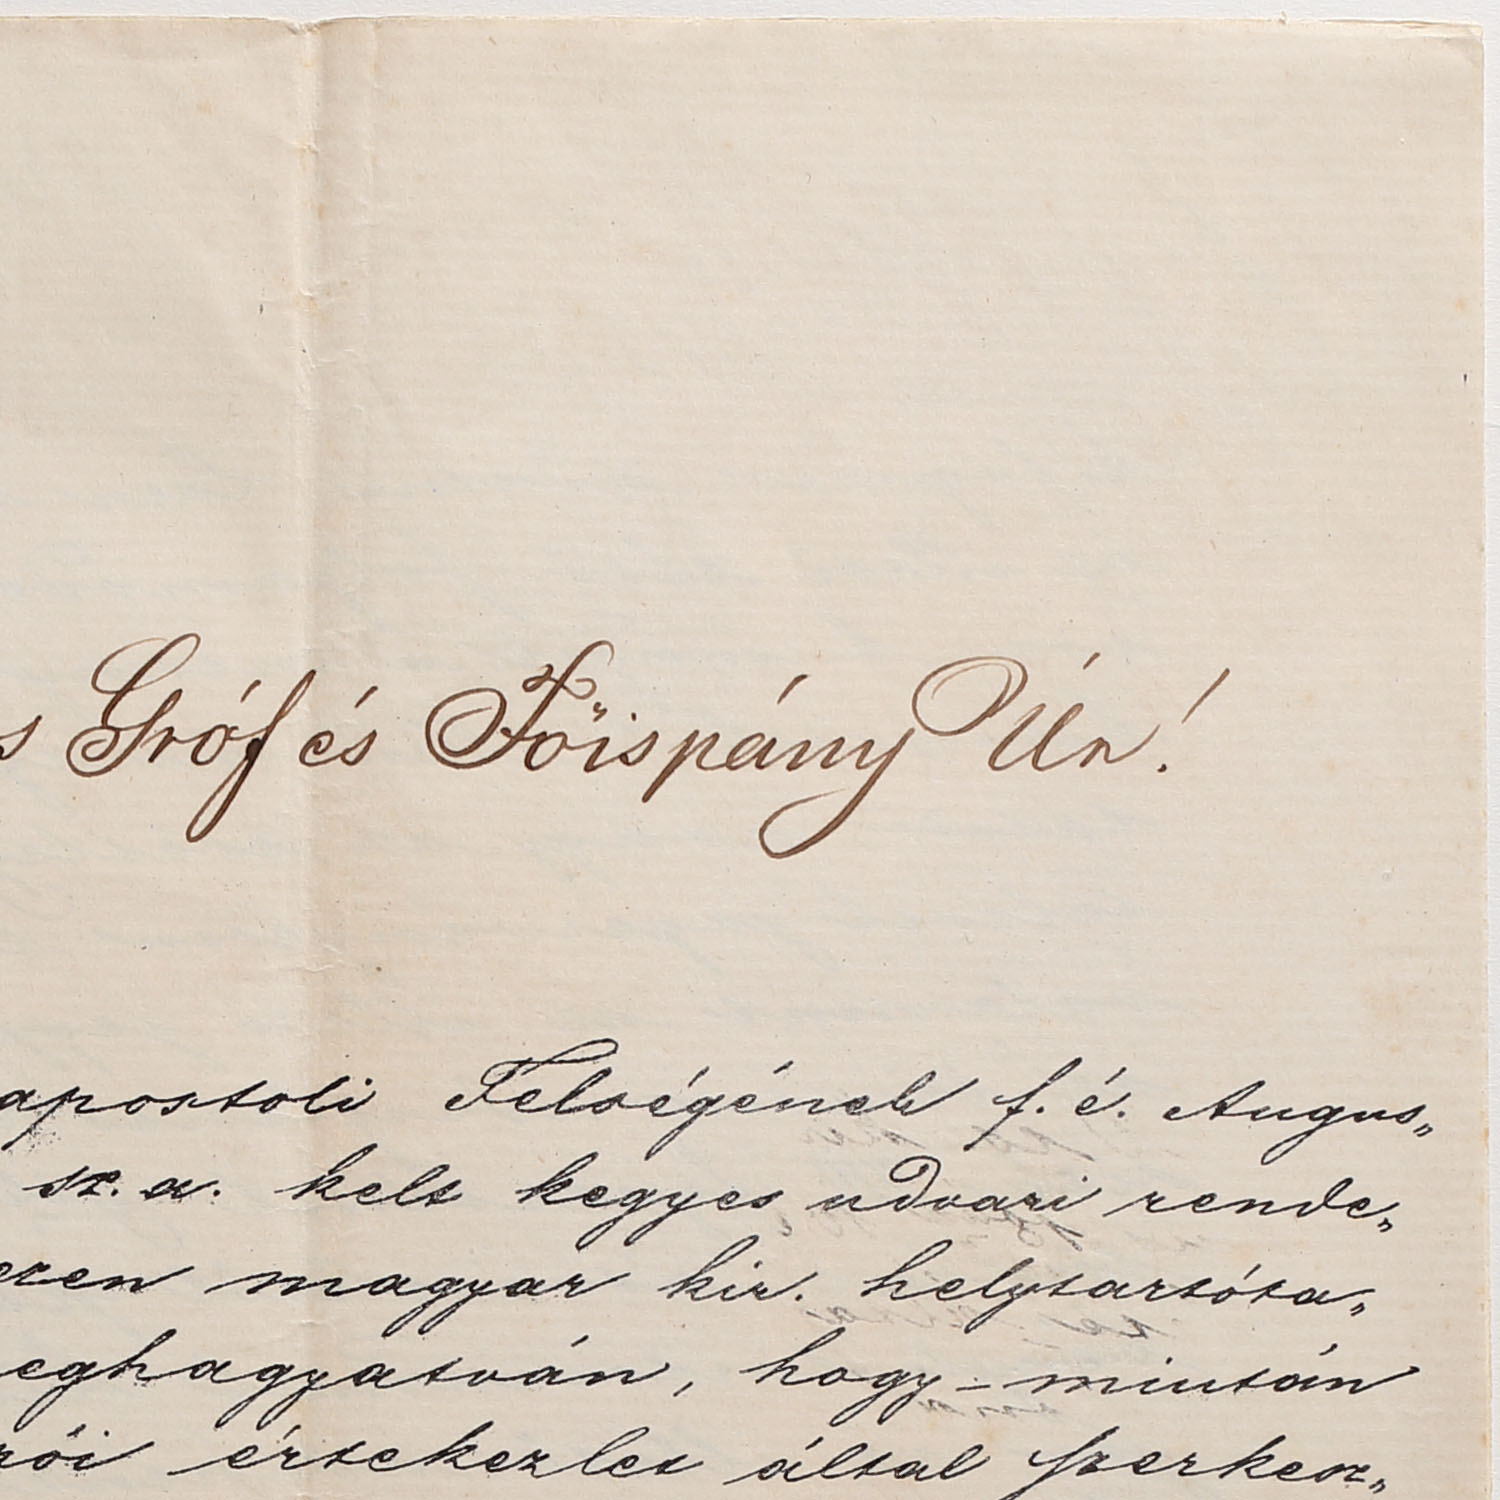 s Gróf és Főispány Úr!
apostoli Felségének f. é. Augus„
sz. a. kelt kegyes udvari rende„
ezen magyar kir. helytartóta„
eghagyatván, hogy – miután
női értekezlet által szerkesz„